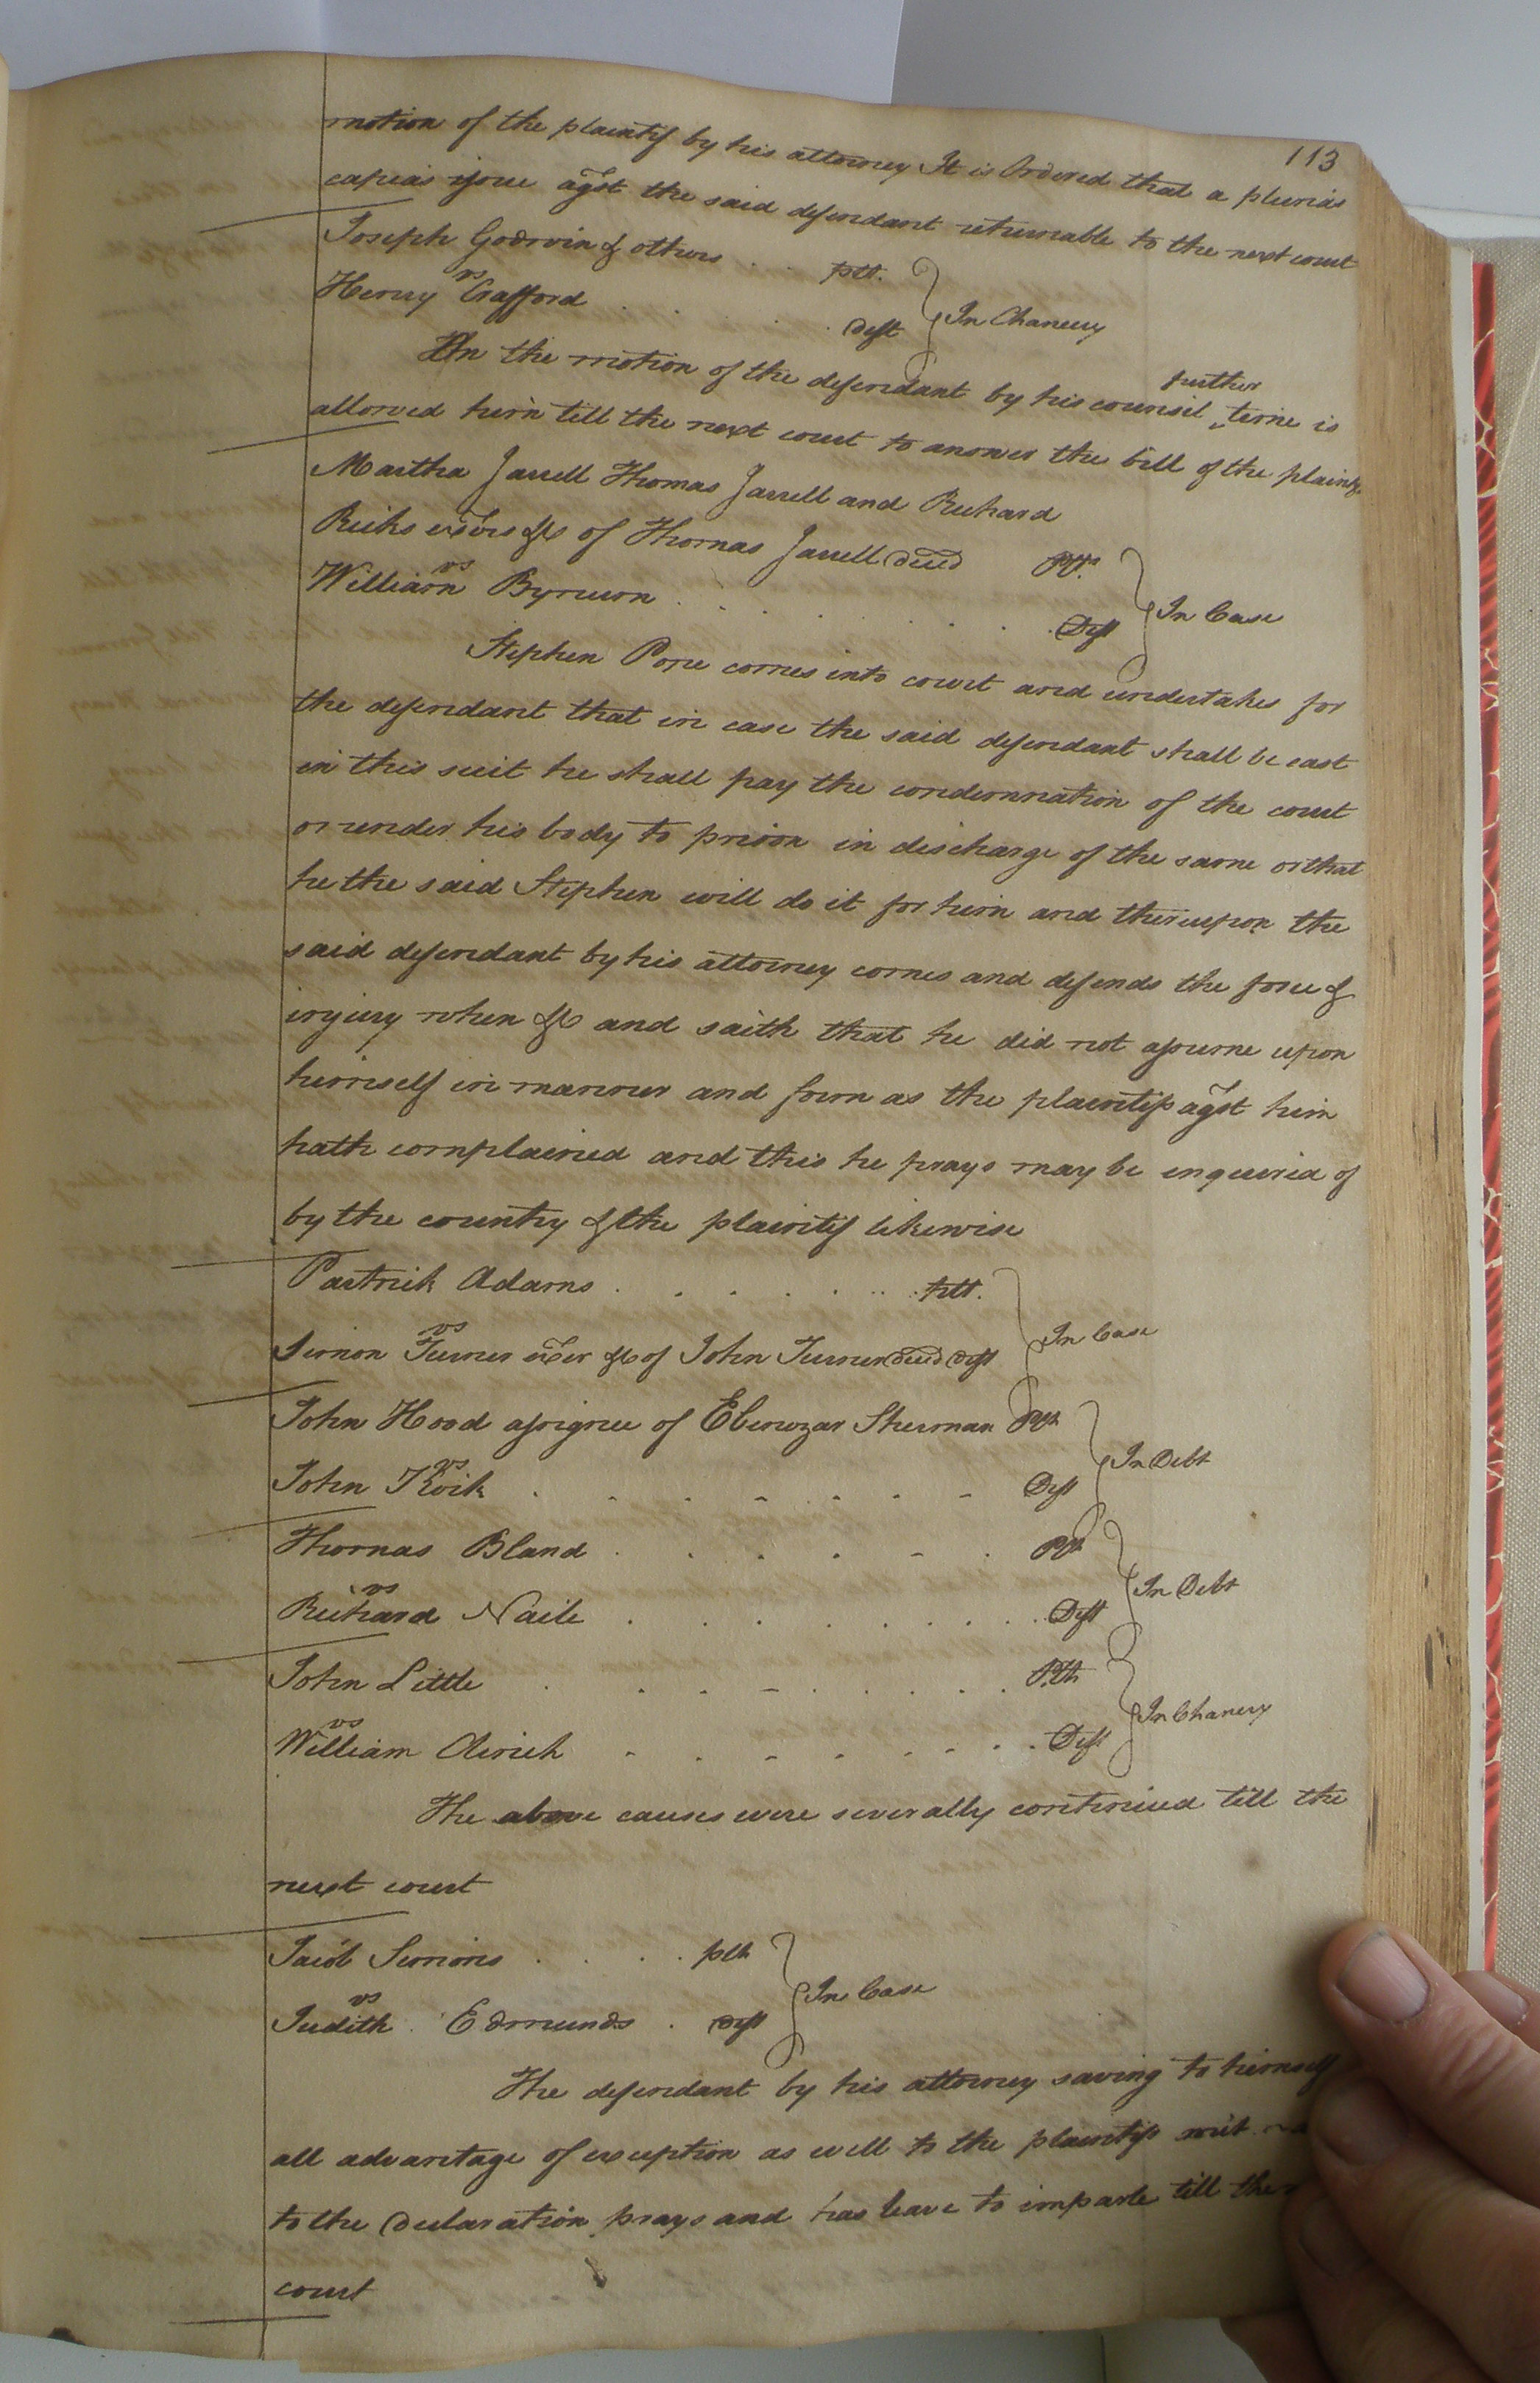 113
motion of the plaintif by his attorney It is Ordered that a plurias
capias issue agst the said defendant returnable to the next court
Joseph Godwin & others . . . pltf.
vs
Henry Crafford . . . . . Deft } In Chancery
On the motion of the defendant by his counsil further time is
allowed him till the next court to answer the bill of the plaintf.
Martha Jarrell Thomas Jarrell and Richard
Ricks exors &c of Thomas Jarrell decd Plts.
vs
William Bynum . . . . . . . Deft } In Case
Stephen Pope comes into court and undertakes for
the defendant that in case the said defendant shall be cast
in this suit he shall pay the condemnation of the court
or render his body to prison in discharge of the same or that
he the said Stephen will do it for him and thereupon the
said defendant by his attorney comes and defends the force &
injury when &c and saith that he did not assume upon
himself in manner and form as the plaintifs agst him
hath complained and this he prays may be enquired of
by the country & the plaintif likewise
Partrick Adams . . . . . . . pltt.
vs
Simon Turner exer &c of John Turner decd Deft } In Case
John Hood assignee of Ebenezar Sherman Plt
vs
John Kirk . . . . . . . Deft } In Debt
Thomas Bland . . . . . . Plt
vs
Richard Naile . . . . . . . . Deft } In Debt
John Little . . . . . . . . Plt
vs
William Airich . . . . . . . . Deft } In Chancery
The above causes were severally continued till the
next court
Jacob Simons . . . . plt
vs
Judith Edmunds . Deft } In Case
The defendant by his attorney saving to himself
all advantage of exception as well to the plaintifs writ
to the Declaration prays and has leave to imparle till the
court